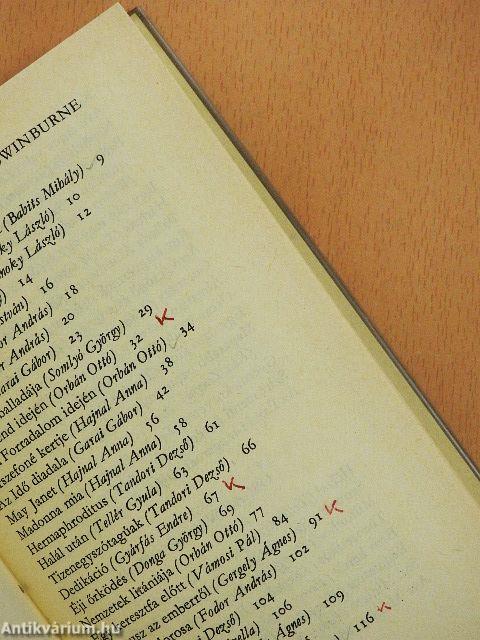 WINBURNE
(Babits Mihály) 9
László) 10
László) 12
14
16
András) 18
András) 20
Garai Gábor) 23
balladája (Somlyó György) 29
idején (Orbán Ottó) 32 K
Forradalom idején (Orbán Ottó) 34
kertje (Hajnal Anna) 38
Az Idő diadala (Garai Gábor) 42
May Janet (Hajnal Anna) 56
Madonna mia (Hajnal Anna) 58
Hermaphroditus (Tandori Dezső) 61
Halál után (Tellér Gyula) 63
Tizenegyszótagúak (Tandori Dezső) 66
Dedikáció (Gyárfás Endre) 67 K
Éji őrködés (Donga György) 69
Nemzetek litániája (Orbán Ottó) 77
előtt (Vámosi Pál) 84
az emberről (Gergely Ágnes) 91 K
(Fodor András) 102
Dezső) 104
106
109
116 K
Antikvárium.hu